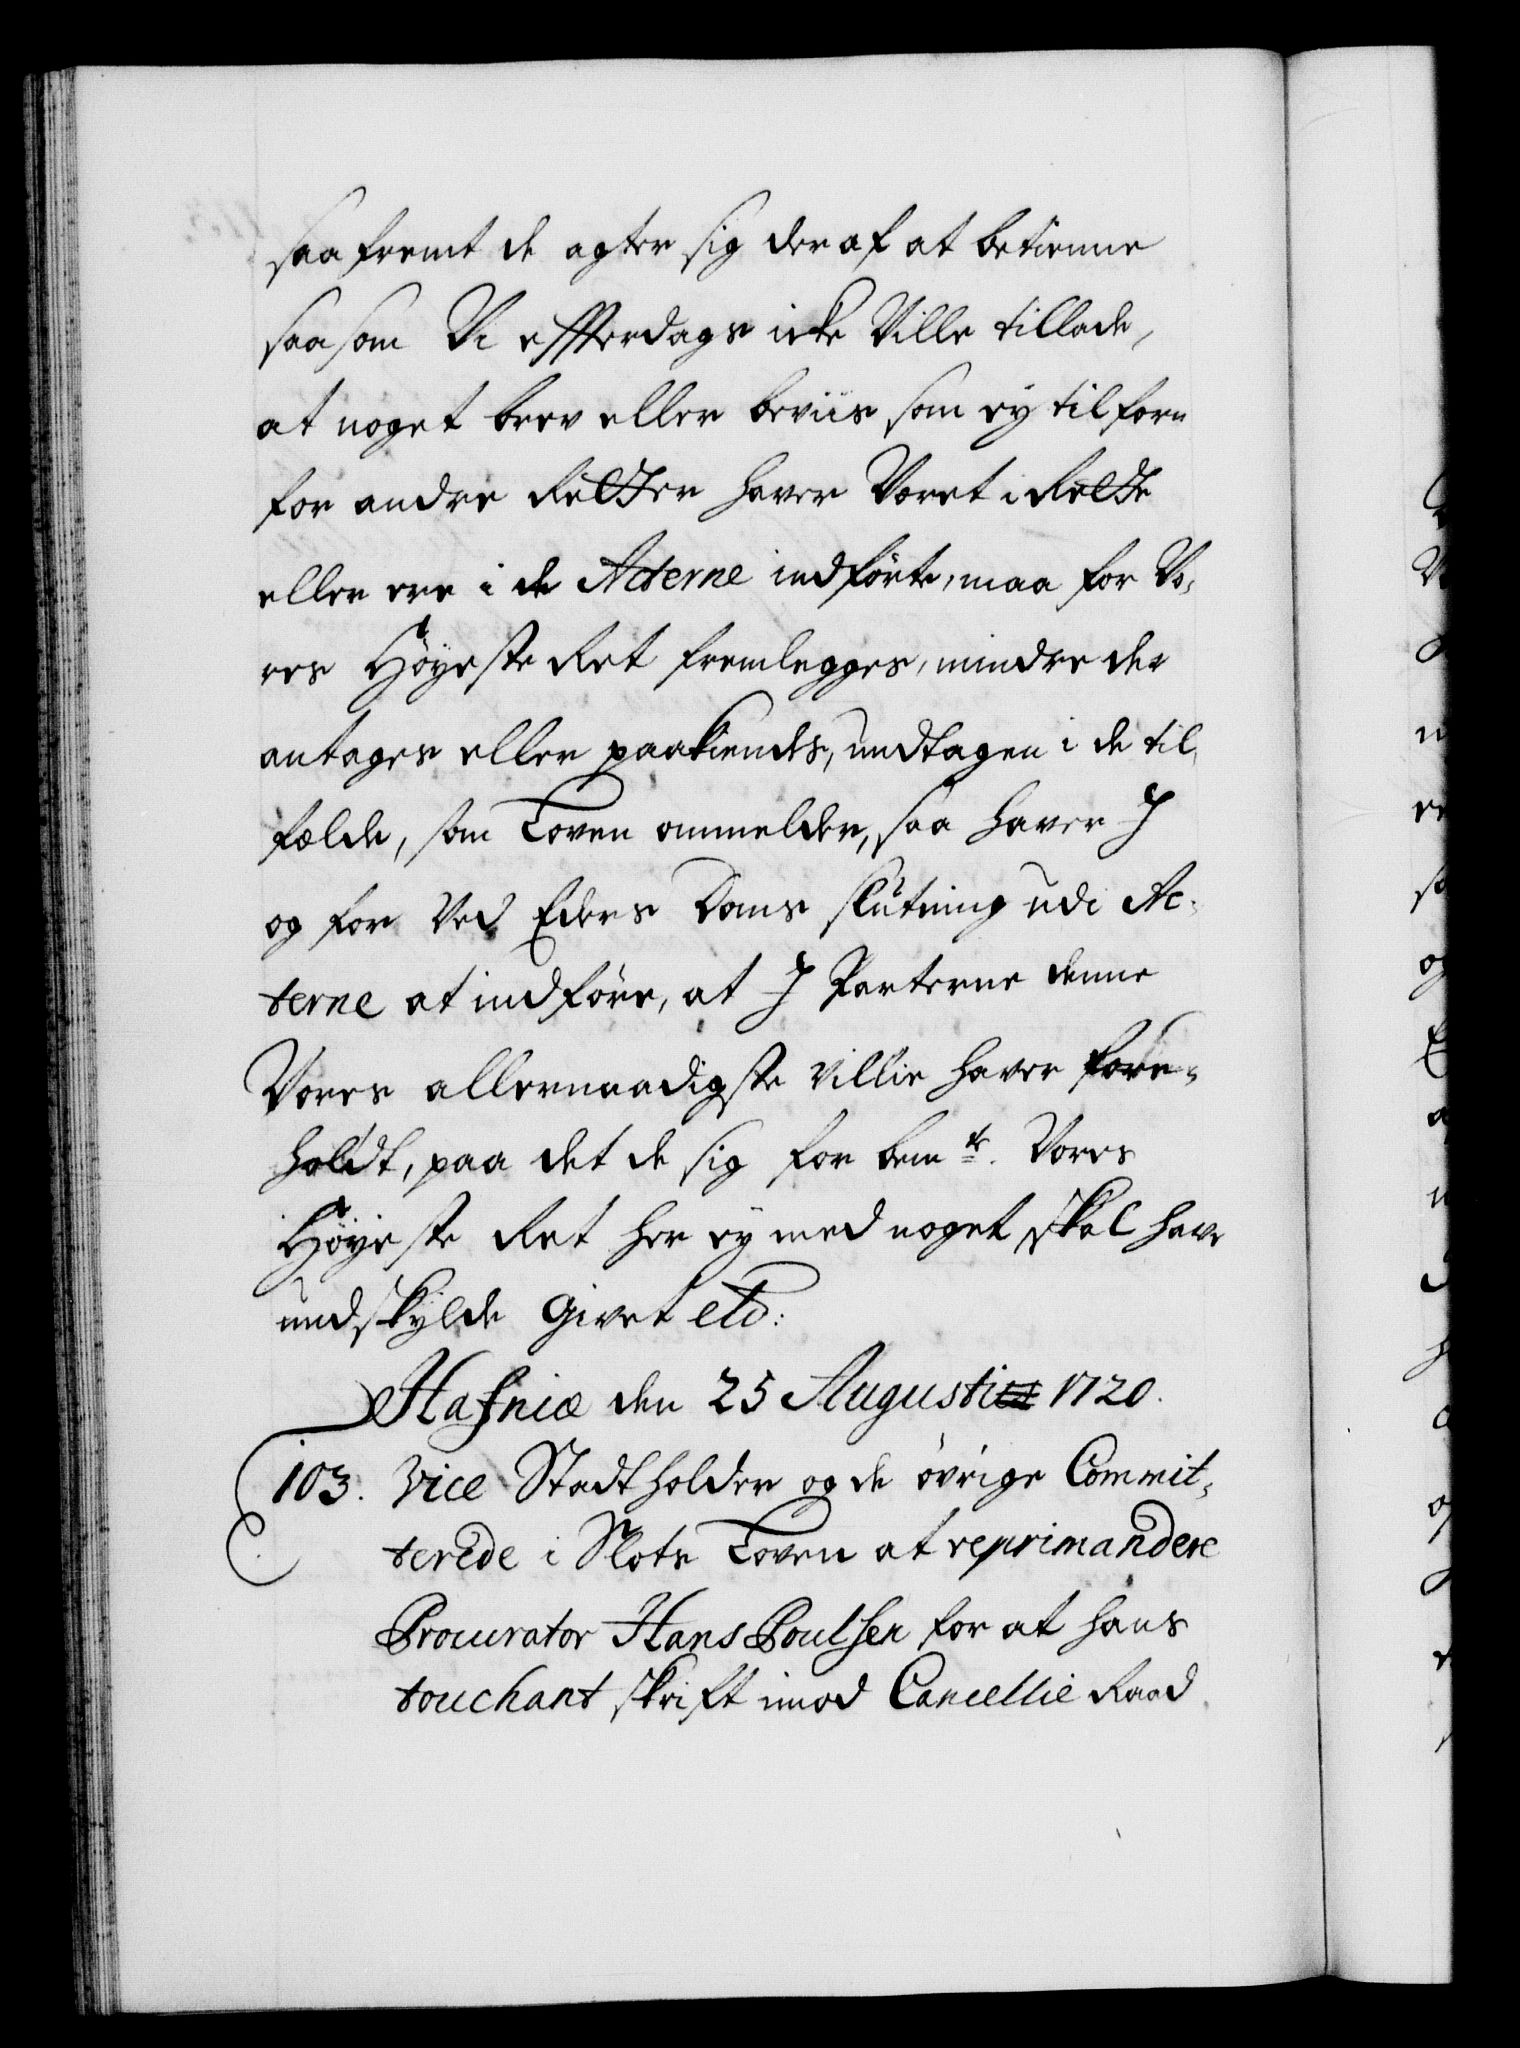 saafremt de agter sig deraf at betienne
saasom Vi efterdags icke Ville tillade,
at noget brev eller beviis som ey tilforn
for andre Retter haver Været i Rette
eller ere i de Acterne indførte, maa for Vo-
res Höyeste Ret fremlegges, mindre der
antages eller paakiendes, undtagen i de til-
fælde, som Loven ommelder, saa haver I
og for Ved Eders Doms slutning udi Ac-
terne at indföre, at I Parterne denne
Vores allernaadigste villie haver fore-
holdt, paa det de sig for bemte. Vores
Höyeste Ret her ey med noget skal have
undskylde Givet etc:
Hafniæ den 25 Augusti 1720.
103. Vice Stadtholder og de övrige Commit-
terede i Slots Loven at reprimandere
Procurator Hans Poulsen for at hans
touchant skrift imod Cancellie Raad